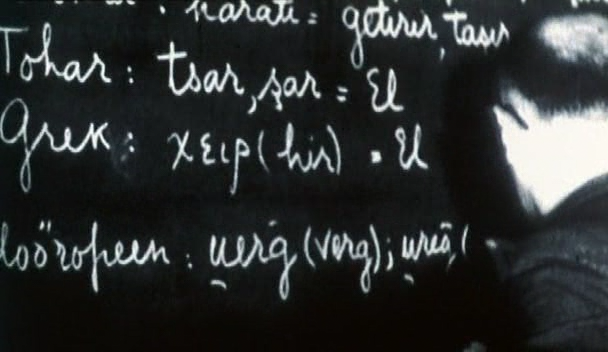 karati = getirir, taşır
Tohar : tsar, şar = El
Grek : χειρ (hir) = El
loöropeen : u̯erĝ (verg) ; u̯reĝ, (